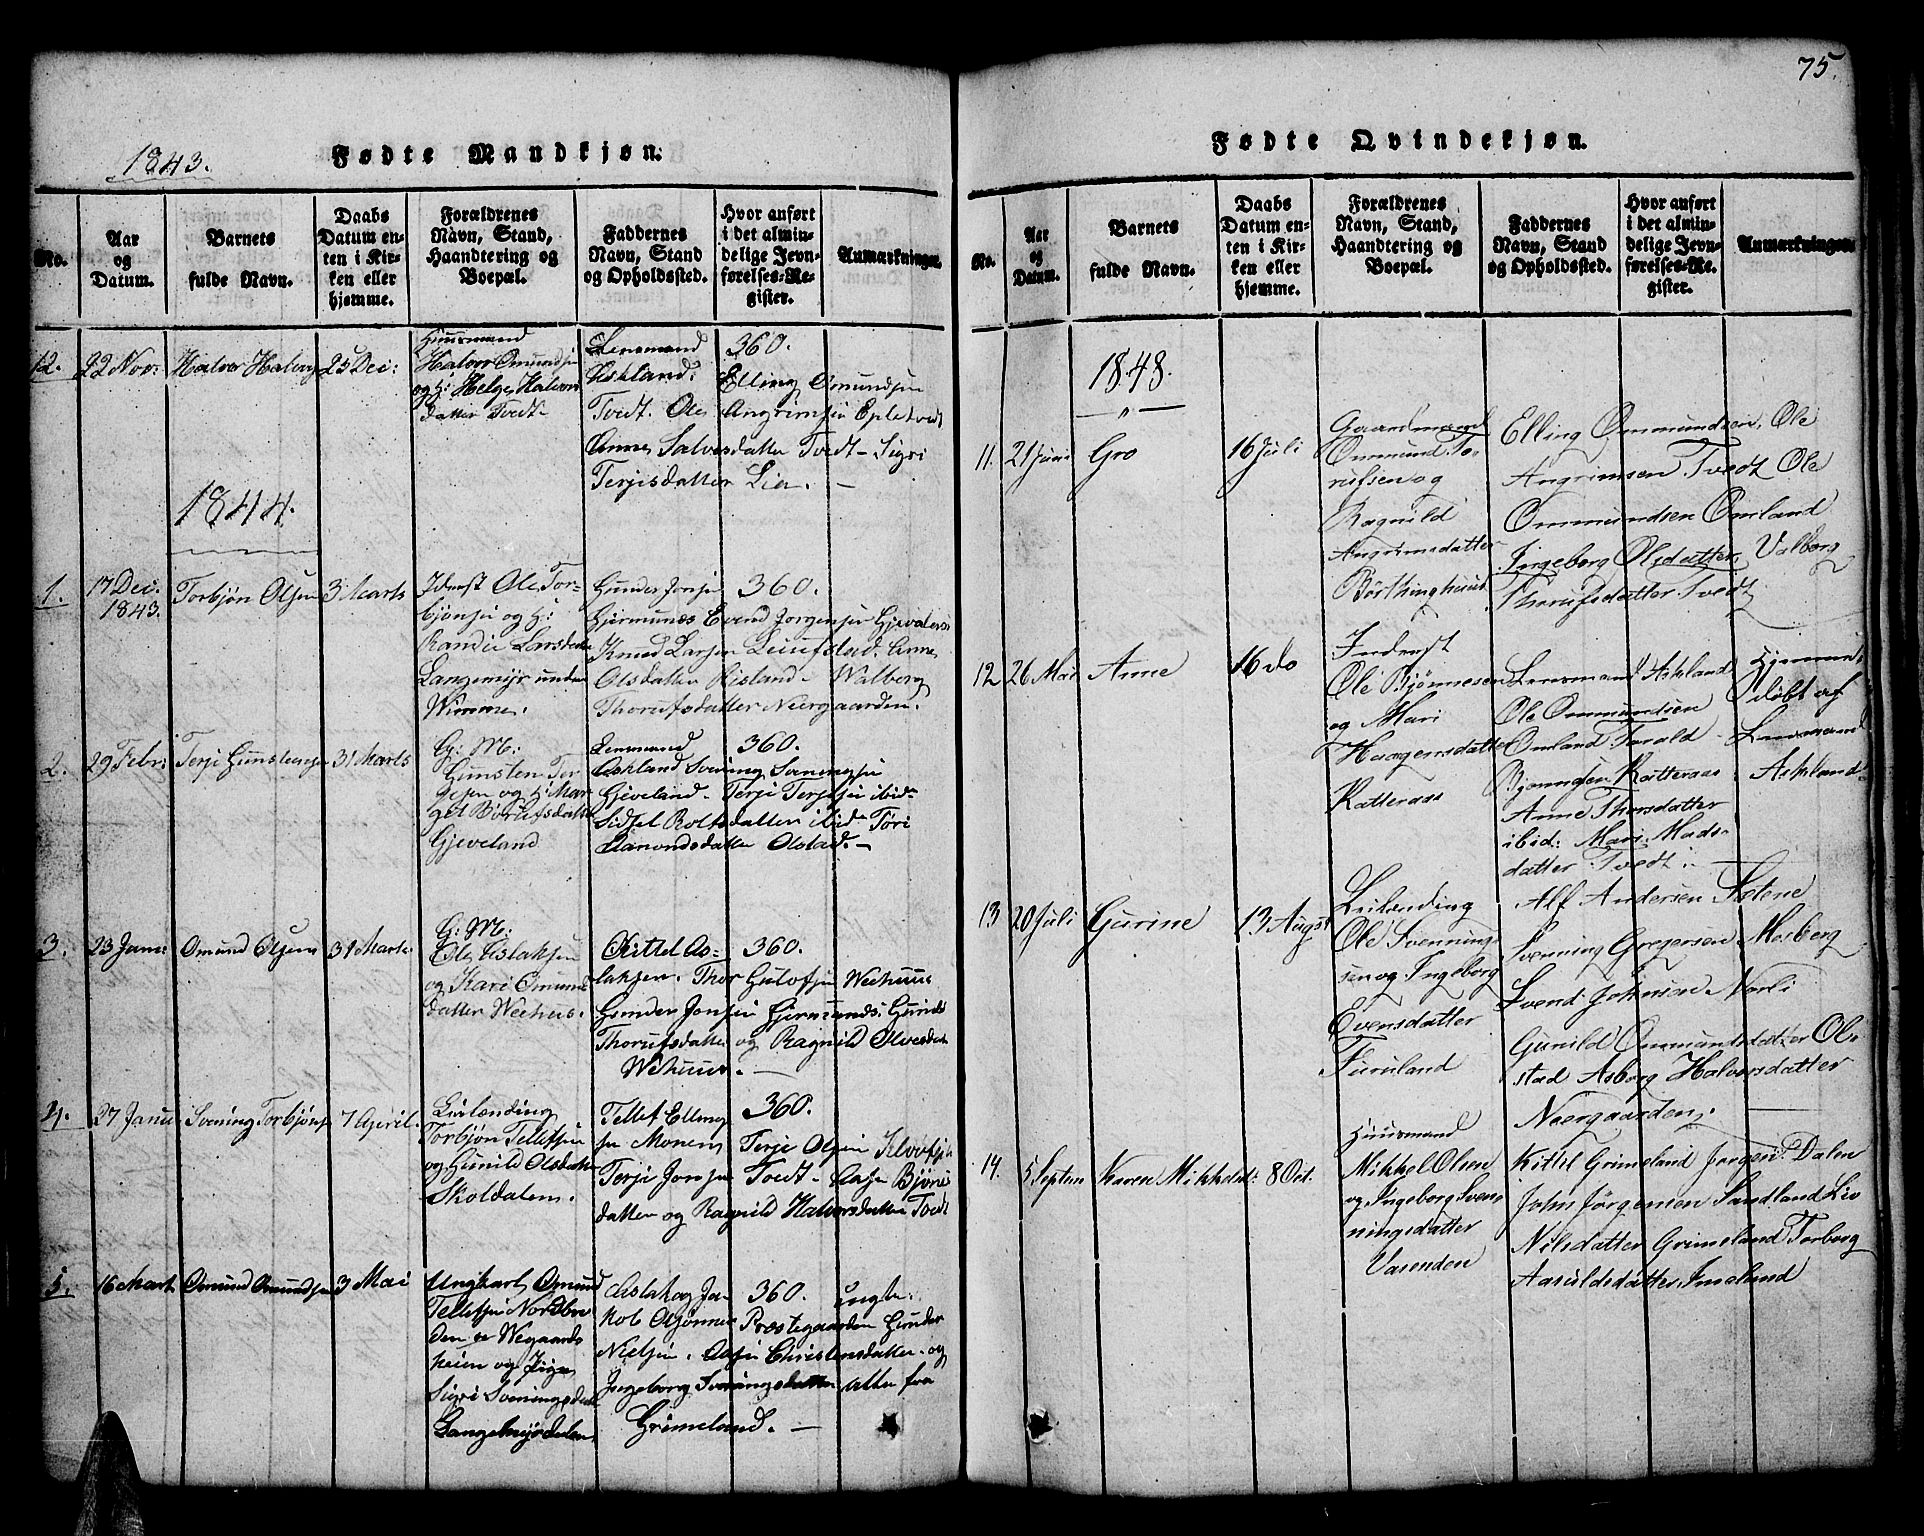 75.
1843.
Fødte Mandkjøn.
No.
Aar og Datum.
Barnets fulde Navn.
Daabs Datum enten i Kirken eller hjemme.
Forældrenes Navn, Stand, Haandtering og Boepæl.
Faddernes Navn, Stand og Opholdssted.
Hvor anført i det almindelige Jevnførelses-Register.
Anmærkninger.
12. 22 Nov: Halvor Halvors 25 Dec:
Huusmand
Halvor Omundsen
og H: Helge Halvors
datter Tvedt
Lensmand 360.
Askland. Elling Omundsen
Tvedt. Ole Angrimsen Epletvedt
Anne Salvesdatter Tvedt - Sigri
Terjisdatter Lien. -
1844.
1. 17 Dec: 1843. Torbjøn Olsen 3 Marts
Iderst Ole Tor-
bjønsen og H:
Randi Larsdatter
Langemyr under
Wimme.
Gunder Jonsen 360.
Gjermunds Evend Jorgensen Gjeveland
Knud Larsen Leiufstad. Anne
Olsdatter Risland - Walborg
Thorufsdatter Neergaarden.
2. 29 Febr: Terje Gunstensen 31 Marts
G: M:
Gunsten Ter
gesen og H: Mar
git Børufsdatter
Gjeveland
Lensmand 360.
Askland Svening Sveningsen
Gjeveland. Terje Terjesen ibid:
Sidsel Rolfsdatter ibid: Tøri
Aamondsdatter Olstad. -
3. 23 Janu: Omund Olsen 31 Marts
G: M:
Ole Aslaksen
og Kari Omunds
datter Weehus.
Kittel As- 360.
laksen. Thor Gulofsen Weehuus
Gunder Jonsen Gjermunds. Gunild
Thorufsdatter og Ragnild Olvesdatter
Wehuus. -
4. 27 Janu Svening Torbjøns 7 April.
Leilænding
Torbjøn Tellefsen
og Gunild Olsdatter
Skoldalen.
Tellef Ellings 360.
sen Monen, Terje Olsen Klovefjel
Terje Jonsen Tvedt - Aase Bjørns
datter og Ragnild Halvorsdatter Tvedt
5. 16 Mart. Omund Omundsen 3 Mai
Ungkarl Omund
Tellefsen Nordbø
den se Wegaards
heien og Pige
Sigri Sveningsdatter
Langemyrdalen
Aslak og Ja- 360. ungk:
kob Olsønner Præstegaarden Gunder
Nielsen. Aasse Christensdatter. og
Ingeborg Sveningsdatter alle fra
Grimeland. -
Fødte Qvindekjøn.
No.
Aar og Datum.
Barnets fulde Navn.
Daabs Datum enten i Kirken eller hjemme.
Forældrenes Navn, Stand, Haandtering og Boepæl.
Faddernes Navn, Stand og Opholdssted.
Hvor anført i det almindelige Jevnførelses-Register.
Anmærkninger.
1848.
11. 21 Juni Gro 16 Juli
Gaardmand
Ommund To-
rufsen og
Ragnild
Angrimsdatter
Børthinghuus
Elling Ommundsen, Ole
Angrimsen Tvedt Ole
Ommundsen Omland
Ingeborg Olsdatter, Valborg
Thorufsdatter Tvedt
12 26 Mai Anne 16 do
Inderst
Ole Bjønnesen
og Mari
Haagensdatter
Ratteraas
Lensmand Askland
Ole Ommundsen
Omland Torald
Bjønnsen Ratteraas
Anne Thorsdatter
ibid: Mari Mads-
datter Tvedt. -
Hjemme-
døbt af
Lensmand
Askland
13 20 Juli Gurine 13 Augst
Leilænding
Ole Svennings-
sen og Ingeborg
Evensdatter
Furuland
Alf Andersen Sætene
Svenning Gregersen Mosberg
Svend Johnsen Norli
Gunild Ommundsdatter Ol-
stad Asborg Halvorsdatter
Neergaarden. -
14. 5 Septem Karen Mikkelsd: 8 Oct.
Huusmand
Mikkel Olsen
og Ingeborg Sven-
ningsdatter
Vasenden
Kittil Grimeland Jørgen Dalen
John Jørgensen Sandland Liv
Nilsdatter Grimeland Torborg
Aasuldsdatter Imeland